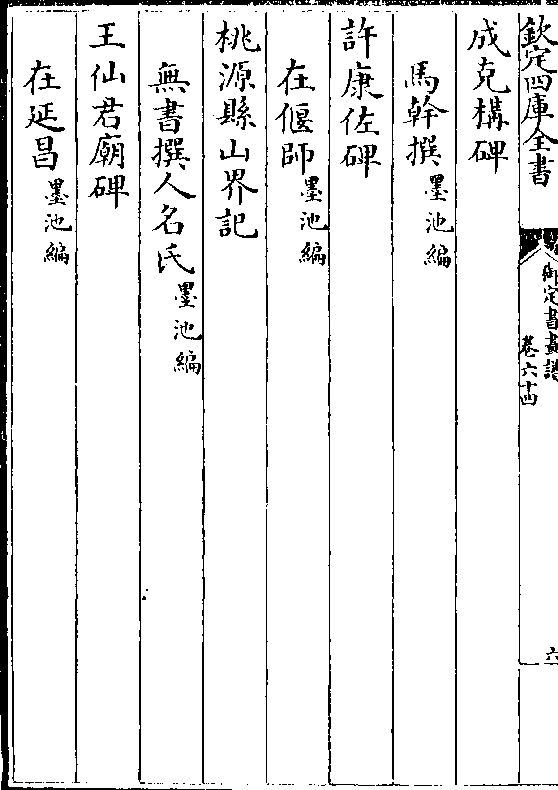 欽定四庫全書
御定書畫譜
卷六十四
六
成克構碑
馬幹撰墨池編
許康佐碑
在偃師墨池編
桃源縣山界記
無書撰人名氏墨池編
王仙君廟碑
在延昌墨池編